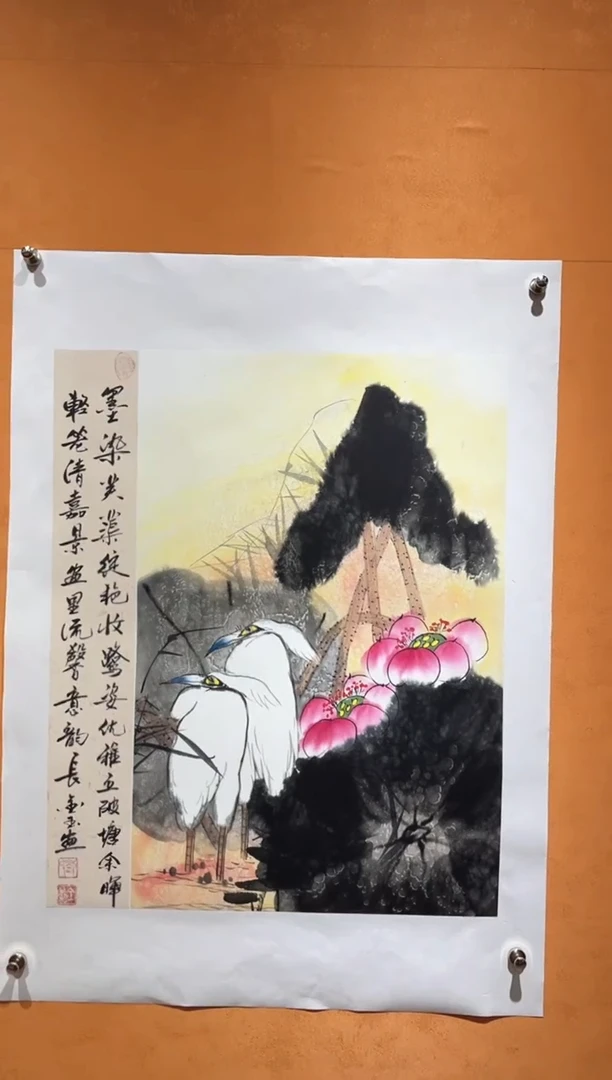 墨染芙蕖绽艳妆鹭姿优雅立陂塘余晖
轻笼清嘉景画里流馨意韵長金玉画